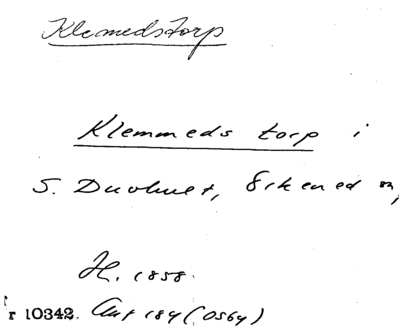 Klemedstorp
Klemmeds torp i
S. Duvhult, Erkened sn,
H. 1858.
r 10342. Ant 184 (OSGÖ)